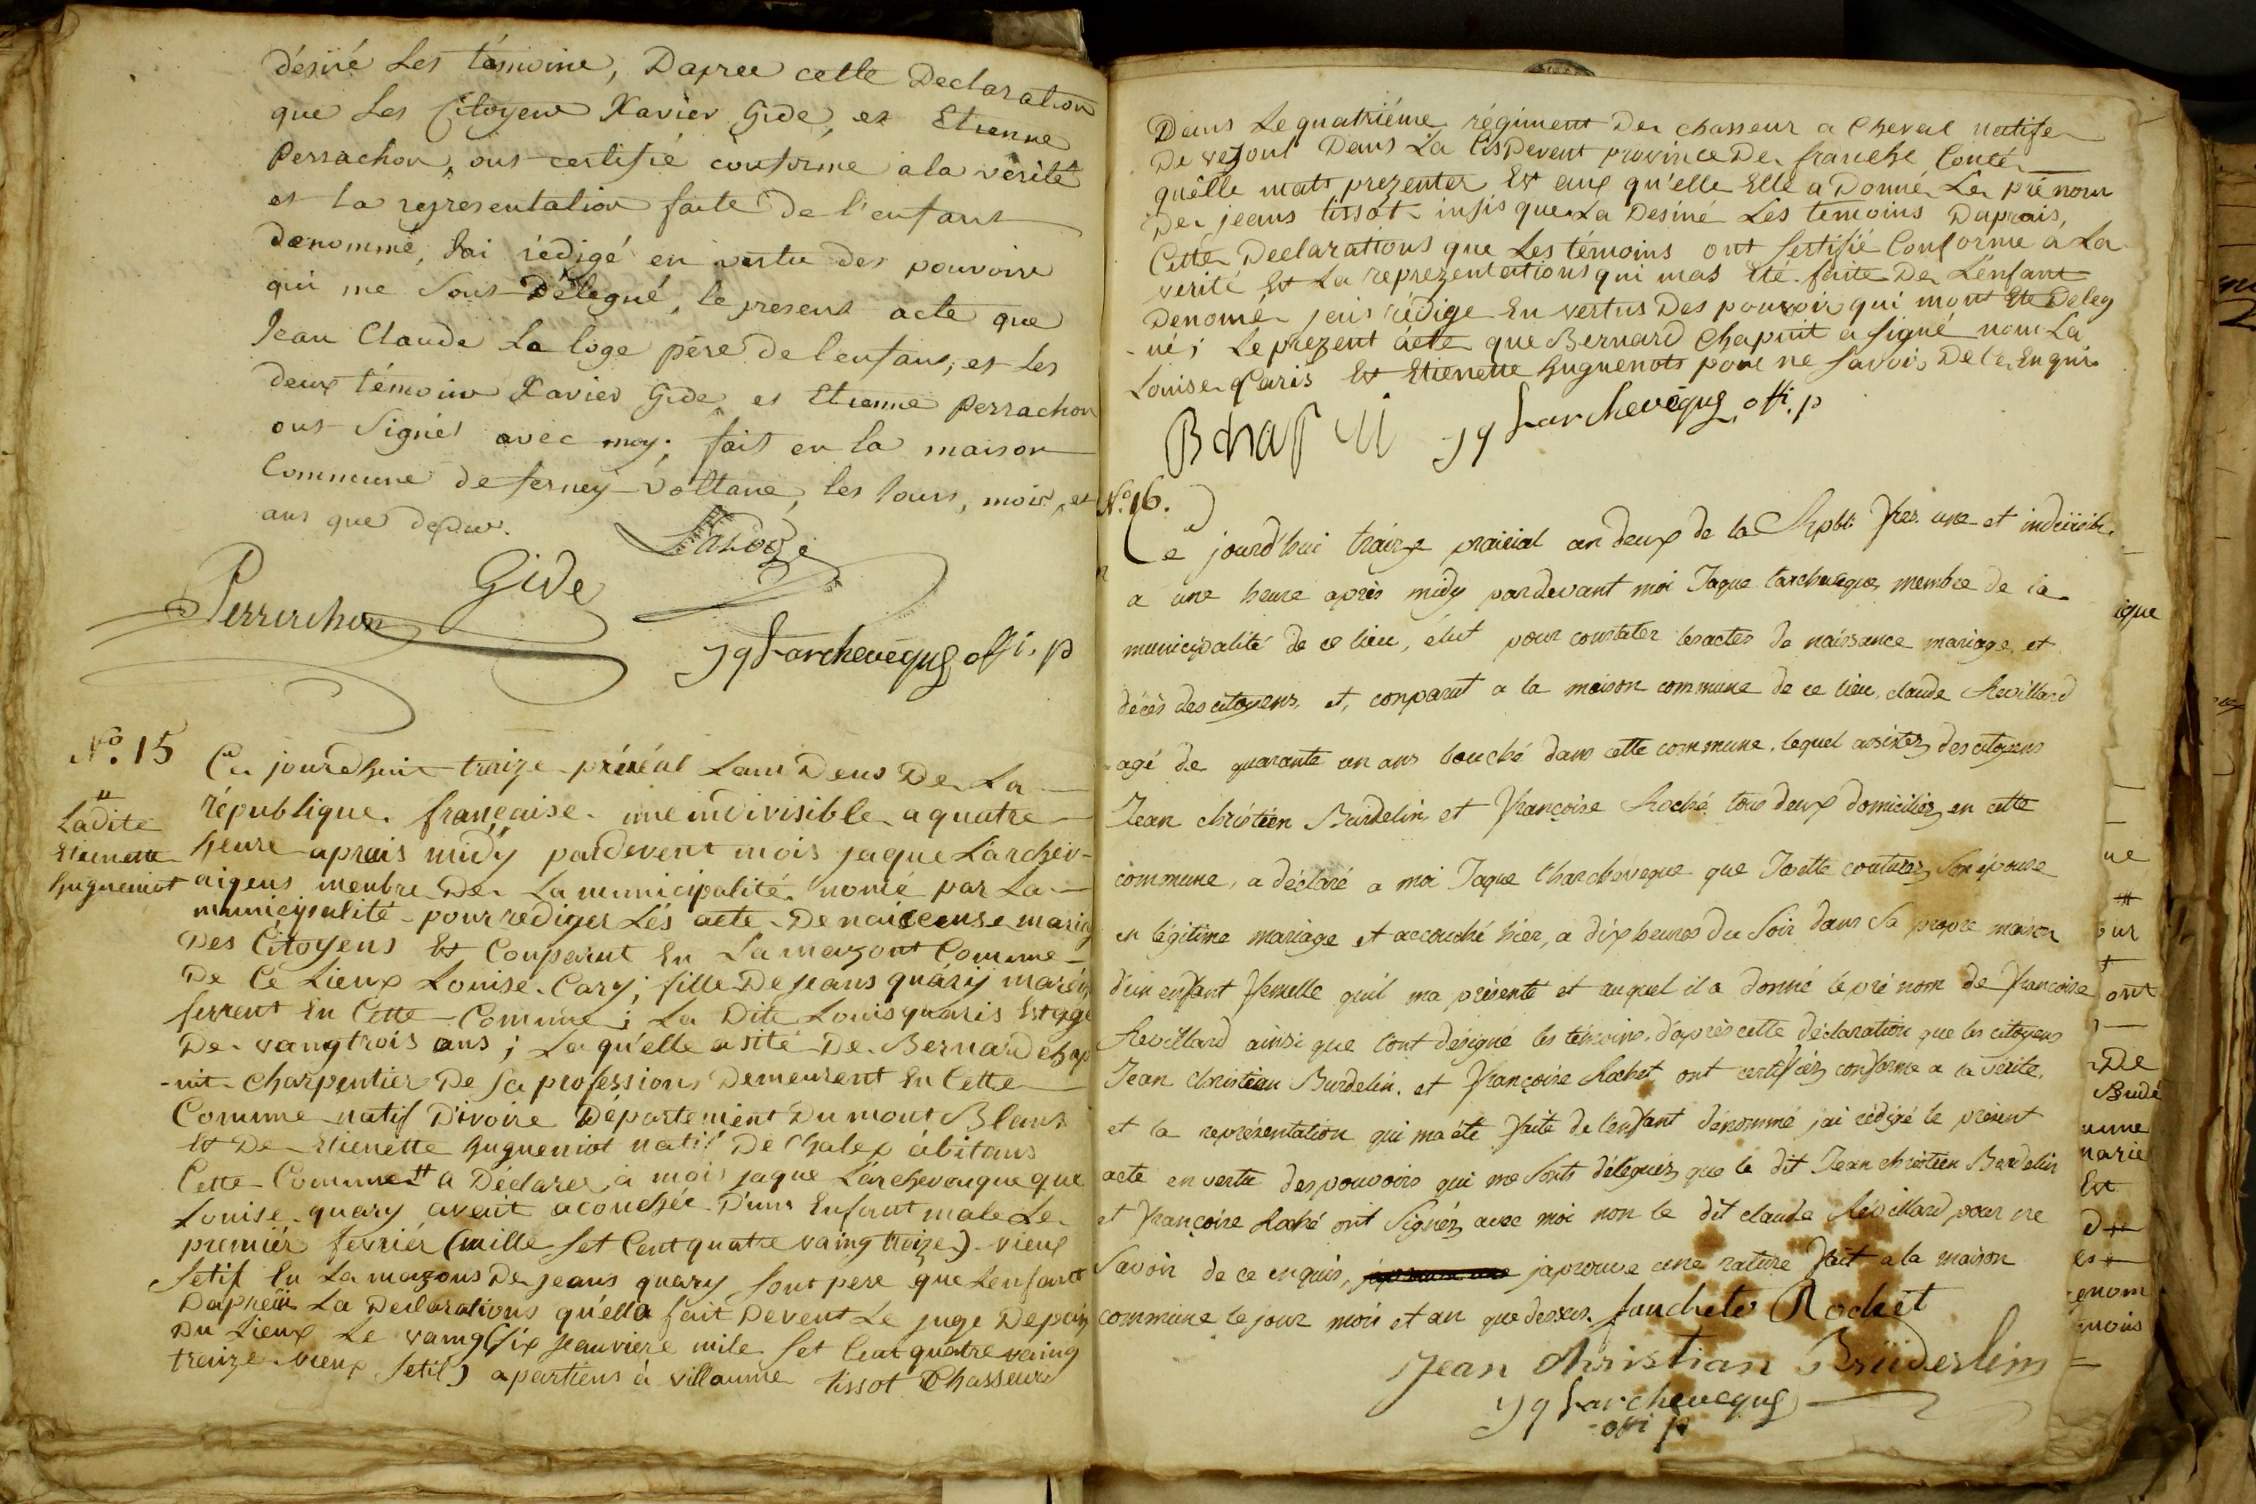 désiré Les témoins, Dapree cette Declaration
que Les Citoyens Xavier Gide, et Etienne
Perrachon, ont certifié conforme a la vérité
et la representation faite De l'enfant
denommé, Jai rédigé en vertu des pouvoirs
qui me Sont Délegué, le present acte que
Jean Claude La loge père de lenfant, et les
deux témoins Xavier Gide, et Etienne Perrachon
ont Signés avec moy; fait en la maison
Commune de ferney-voltaire, les Jours, mois, et
ans que dessus.
Laloge
Gide
Perrachon
Jq Larcheveque offi. p
No. 15
Ce jourdhuit traize prérial Lans Deus De La
république française une indivisible a quatre
heure aprais midy pardevent mois jaque Larchev-
aigeus menbre De La municipalité nomé par La
municipalité pour rediger Lés acte De naiscense mariag
Des Citoyens Et Conparut En La mazont Comune
De Ce Lieux Louise Cary; fille De jeans quáry maréch
ferrent En Cette Comune; La Dite Louis quaris Est agé
De vangtrois ans; Laqu'elle asité De Bernard chap
-uit Charpentier De Sa professions Demeurent En Cette
Comune natif D'ivoire Département Du mont Blans
Et De Etienette huguenioт natif De Chalex abitans
Cette Commune # a Déclaree à mois jaque Larchevouque que
Louise quary aveit acouchée D'uns Enfant male Le
premiér fevriér (mille Set Cent quatre vaing traize) vieux
Setif En La mazons De jeans quary Sont pere que Lenfant
Dapreii La Declarations qu'ella fait Devent Le juge Depaix
Du Lieux Le vaing (Six jeauviere mile Set Cent quatre vaing
traize vieux Setif) apartiens à villaume tissot Chasseur
"
Ladite
Etienette
hugueniot
Dans Le quatriéme régiment Der chasseur a Cheval natife
De vesoul Dans La CisDevent province De franche Conté
quêlle mats prezenter Et auq qu'elle Elle a Donné Le prénom
De jeans tissot insis que La Desiné Les temoins Daprais,
Cette Declarations que Les témoins ont Sertifié Conforme a La
verité Et La reprezentations qui mas Eté faite De L'enfant
Denomé jais rédige En vertus Des pouvoir qui mont Eté Deleg
-ué; Le prezent ácte que Bernard Chapuit a Signé nom La
Louise Caris Et Etienette huguenots pour ne Savoir De Ce Enquis
B chapui
Jq Larcheveque offi. p
No. 16.
Ce jourd'hui traize prairial an deux de la Repbl. fse. une et indivisible
a une heure après midy pardevant moi Jaque Larcheveque membre de la
municipalité de ce lieu, élut pour constater les actes de naissance mariage et
décès des citoyens, et, conparut a la maison commune de ce lieu, claude Revillard
agé de quarante un ans bouché dans cette commune, lequel assistez des citoyens
Jean chrétien Burdelin et françoise Roché tous deux domiciliez en cette
commune, a déclaré a moi Jaque Lharcheveque que Josette couturez Son épouse
en légitime mariage et accouché hier, a dix heures du Soir dans Sa propre maison
d'un enfant femelle quil ma présenté et auquel il a donné le pré nom de françoise
Revillard ainsi que lont désigné les témoins, d'après cette déclaration que les citoyens
Jean christian Burdelin, et françoise Rochet ont certifiéz conforme a la vérité,
et la représentation qui ma été faite de l'enfant dénommé jai rédigé le présent
acte en vertu des pouvoirs qui me Sonts déleguéz que le dit Jean chrétien Burdelin
et françoise Roché ont Signéz avec moi non le dit claude Révillard pour ne
Savoir de ce enquis, japrouve une rature fait a la maison
commune le jour mois et an que dessus. fanchete Rochet
Jean Christian Brüderlin
Jq Larcheveque
offi p
ique
ne
#
our
ont
De
Budé
unne
narie
Et
es
enom
mois